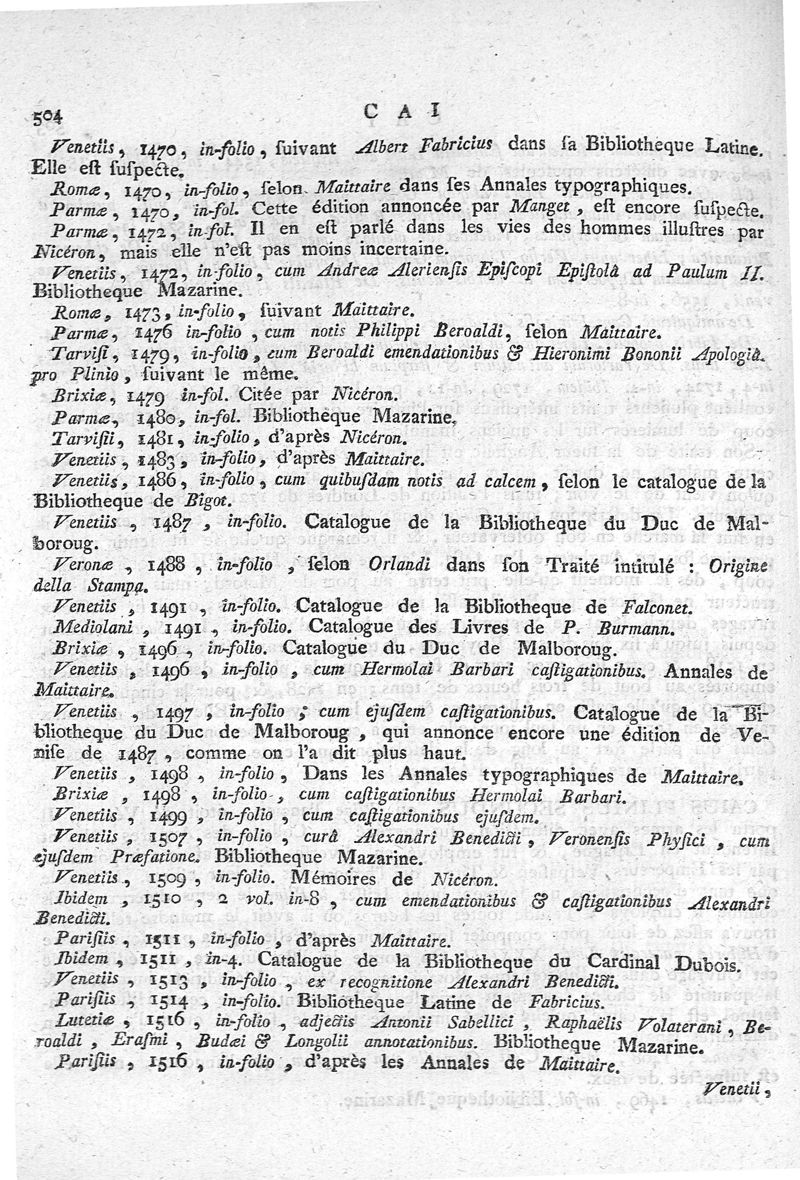 504 C A I
Venetiis, 1470, in-folio, ſuivant Albert Fabricius dans ſa Bibliotheque Latine.
Elle eſt ſuſpecte.
Romæ, 1470, in-folio, ſelon Maittaire dans ſes Annales typographiques.
Parmæ, 1470, in-fol. Cette édition annoncée par Manget, eſt encore ſuſpecte.
Parmæ, 1472, in-fol. Il en eſt parlé dans les vies des hommes illuſtres par
Nicéron, mais elle n'eſt pas moins incertaine.
Venetiis, 1472, in-folio, cum Andreæ Alerienſis Epiſcopi Epiſtolâ ad Paulum II.
Bibliotheque Mazarine.
Romæ, 1473, in-folio, ſuivant Maittaire.
Parmæ, 1476 in-folio, cum notis Philippi Beroaldi, ſelon Maittaire.
Tarviſi, 1479, in-folio, cum Beroaldi emendationibus & Hieronimi Bononii Apologiâ.
pro Plinio, ſuivant le même.
Brixiæ, 1479 in-fol. Citée par Nicéron.
Parmæ, 1480, in-fol. Bibliothéque Mazarine.
Tarviſii, 1481, in-folio, d'après Nicéron.
Venetiis, 1483, in-folio, d'après Maittaire.
Venetiis, 1486, in-folio, cum quibuſdam notis ad calcem, ſelon le catalogue de la
Bibliotheque de Bigot.
Venetiis, 1487, in-folio. Catalogue de la Bibliotheque du Duc de Mal-
boroug.
Veronæ, 1488, in-folio, ſelon Orlandi dans ſon Traité intitulé : Origine
della Stampa.
Venetiis, 1491, in-folio. Catalogue de la Bibliotheque de Falconet.
Mediolani, 1491, in-folio. Catalogue des Livres de P. Burmann.
Brixiæ, 1496, in-folio. Catalogue du Duc de Malboroug.
Venetiis, 1496, in-folio, cum Hermolai Barbari caſtigationibus. Annales de
Maittaire.
Venetiis, 1497, in-folio; cum ejuſdem caſtigationibus. Catalogue de la Bi-
bliotheque du Duc de Malboroug, qui annonce encore une édition de Ve-
niſe de 1487, comme on l'a dit plus haut.
Venetiis, 1498, in-folio, Dans les Annales typographiques de Maittaire.
Brixiæ, 1498, in-folio, cum caſtigationibus Hermolai Barbari.
Venetiis, 1499, in-folio, cum caſtigationibus ejuſdem.
Venetiis, 1507, in-folio, curâ Alexandri Benedicti, Veronenſis Phyſici, cum
ejuſdem Præfatione. Bibliotheque Mazarine.
Venetiis, 1509, in-folio. Mémoires de Nicéron.
Ibidem, 1510, 2 vol. in-8, cum emendationibus & caſtigationibus Alexandri
Benedicti.
Pariſiis, 1511, in-folio, d'après Maittaire.
Ibidem, 1511, in-4. Catalogue de la Bibliotheque du Cardinal Dubois.
Venetiis, 1513, in-folio, ex recognitione Alexandri Benedicti.
Pariſiis, 1514, in-folio. Bibliotheque Latine de Fabricius.
Lutetiæ, 1516, in-folio, adjectis Antonii Sabellici, Raphaëlis Volaterani, Be-
roaldi, Eraſmi, Budæi & Longolii annotationibus. Bibliotheque Mazarine.
Pariſiis, 1516, in-folio, d'après les Annales de Maittaire.
Venetii,